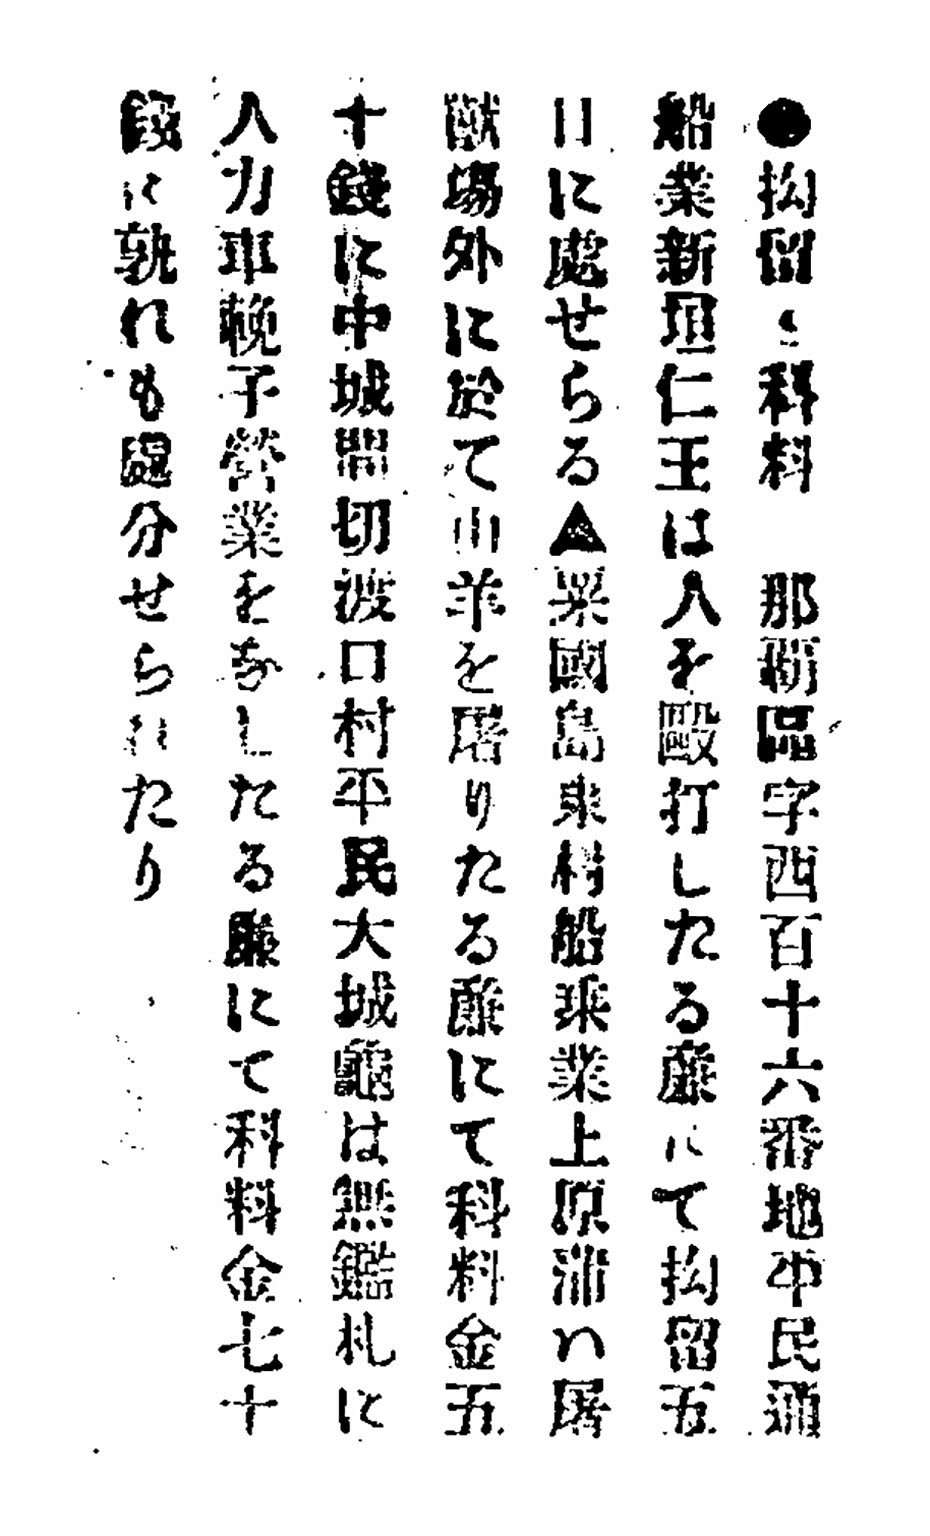 ●拘留と科料　那覇區字西百十六番地平民通
船業新垣仁王は人を毆打したる廉にて拘留五
日に處せらる▲粟國島東村船乗業上原蒲ハ屠
獣場外に於て山羊を屠りたる廉にて科料金五
十錢に中城間切渡口村平民大城龜は無鑑札に
人力車輓子營業をなしたる廉にて科料金七十
錢に孰れも處分せられたり